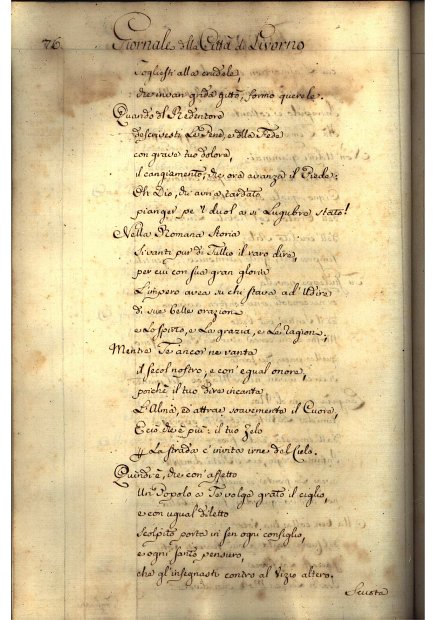 76. Giornale della Città di Livorno
Togliesti alla crudele,
che invan grida gittò, formò querele.
Quando del Redentore
descrivesti Le Pene, e della Fede
con grave tuo dolore,
il cangiamento, che ora avanza il Piede:
Oh Dio, chi avria tardato
pianger pe 'l duol a sì Lugubre stato!
Nella Romana Storia
Si vanti pur di Tullio il raro dire,
per cui con sua gran gloria
L'impero avea su chi stava ad Udire
di sue belle orazione
e Lo spirto, e La grazia, e La Ragion,
Mentre Te ancor ne vanta
il secol nostro, e con egual onore,
poichè il tuo dire incanta
L'Alma, ed attrae soavemente il Cuore,
E ciò che è più: il tuo Zelo
La strada c'invita irne del Cielo.
Quindi è, che con affetto
Un Popolo a Te volge grato il ciglio,
e con ugual diletto
Scolpito porta in sen ogni consiglio,
e ogni santo pensiero,
che gl'insegnasti contro al Vizio altero.
Scusta